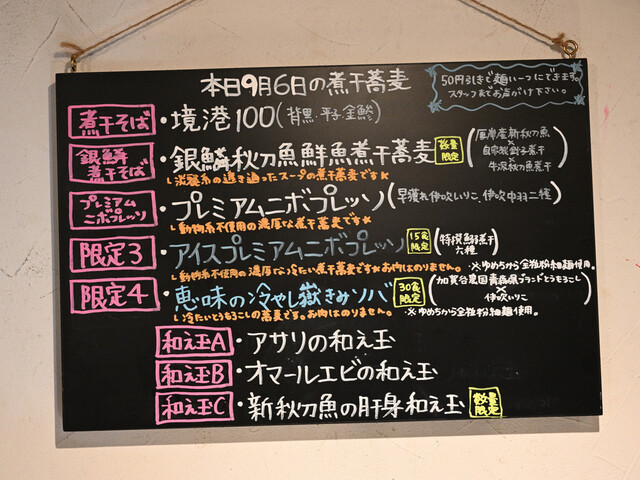 本日9月6日の煮干蕎麦
50円引きで麺1/2にできます。
スタッフまでお声がけ下さい。
煮干そば ・境港100(背黒・平子・金鯵)
銀鱗煮干そば ・銀鱗秋刀魚鮮魚煮干蕎麦 数量限定 (厚岸産新秋刀魚×自家製銚子煮干×牛深秋刀魚煮干)
└淡麗系の透き通ったスープの煮干蕎麦です
プレミアムニボプレッソ ・プレミアムニボプレッソ(早獲れ伊吹いりこ、伊吹中羽二種)
└動物系不使用の濃厚な煮干蕎麦です
限定3 ・アイスプレミアムニボプレッソ 15食限定 (特撰鯛煮干六種)
└動物系不使用の濃厚な冷たい煮干蕎麦です お肉はのりません。 ・※ゆめちから全粒粉細麺使用。
限定4 ・恵味の冷やし嶽きみソバ 30食限定 (加賀谷農園青森県ブランドとうもろこし×伊吹いりこ)
└冷たいとうもろこしの蕎麦です。お肉はのりません。 ・※ゆめちから全粒粉細麺使用。
和え玉A ・アサリの和え玉
和え玉B ・オマールエビの和え玉
和え玉C ・新秋刀魚の肝身和え玉 数量限定